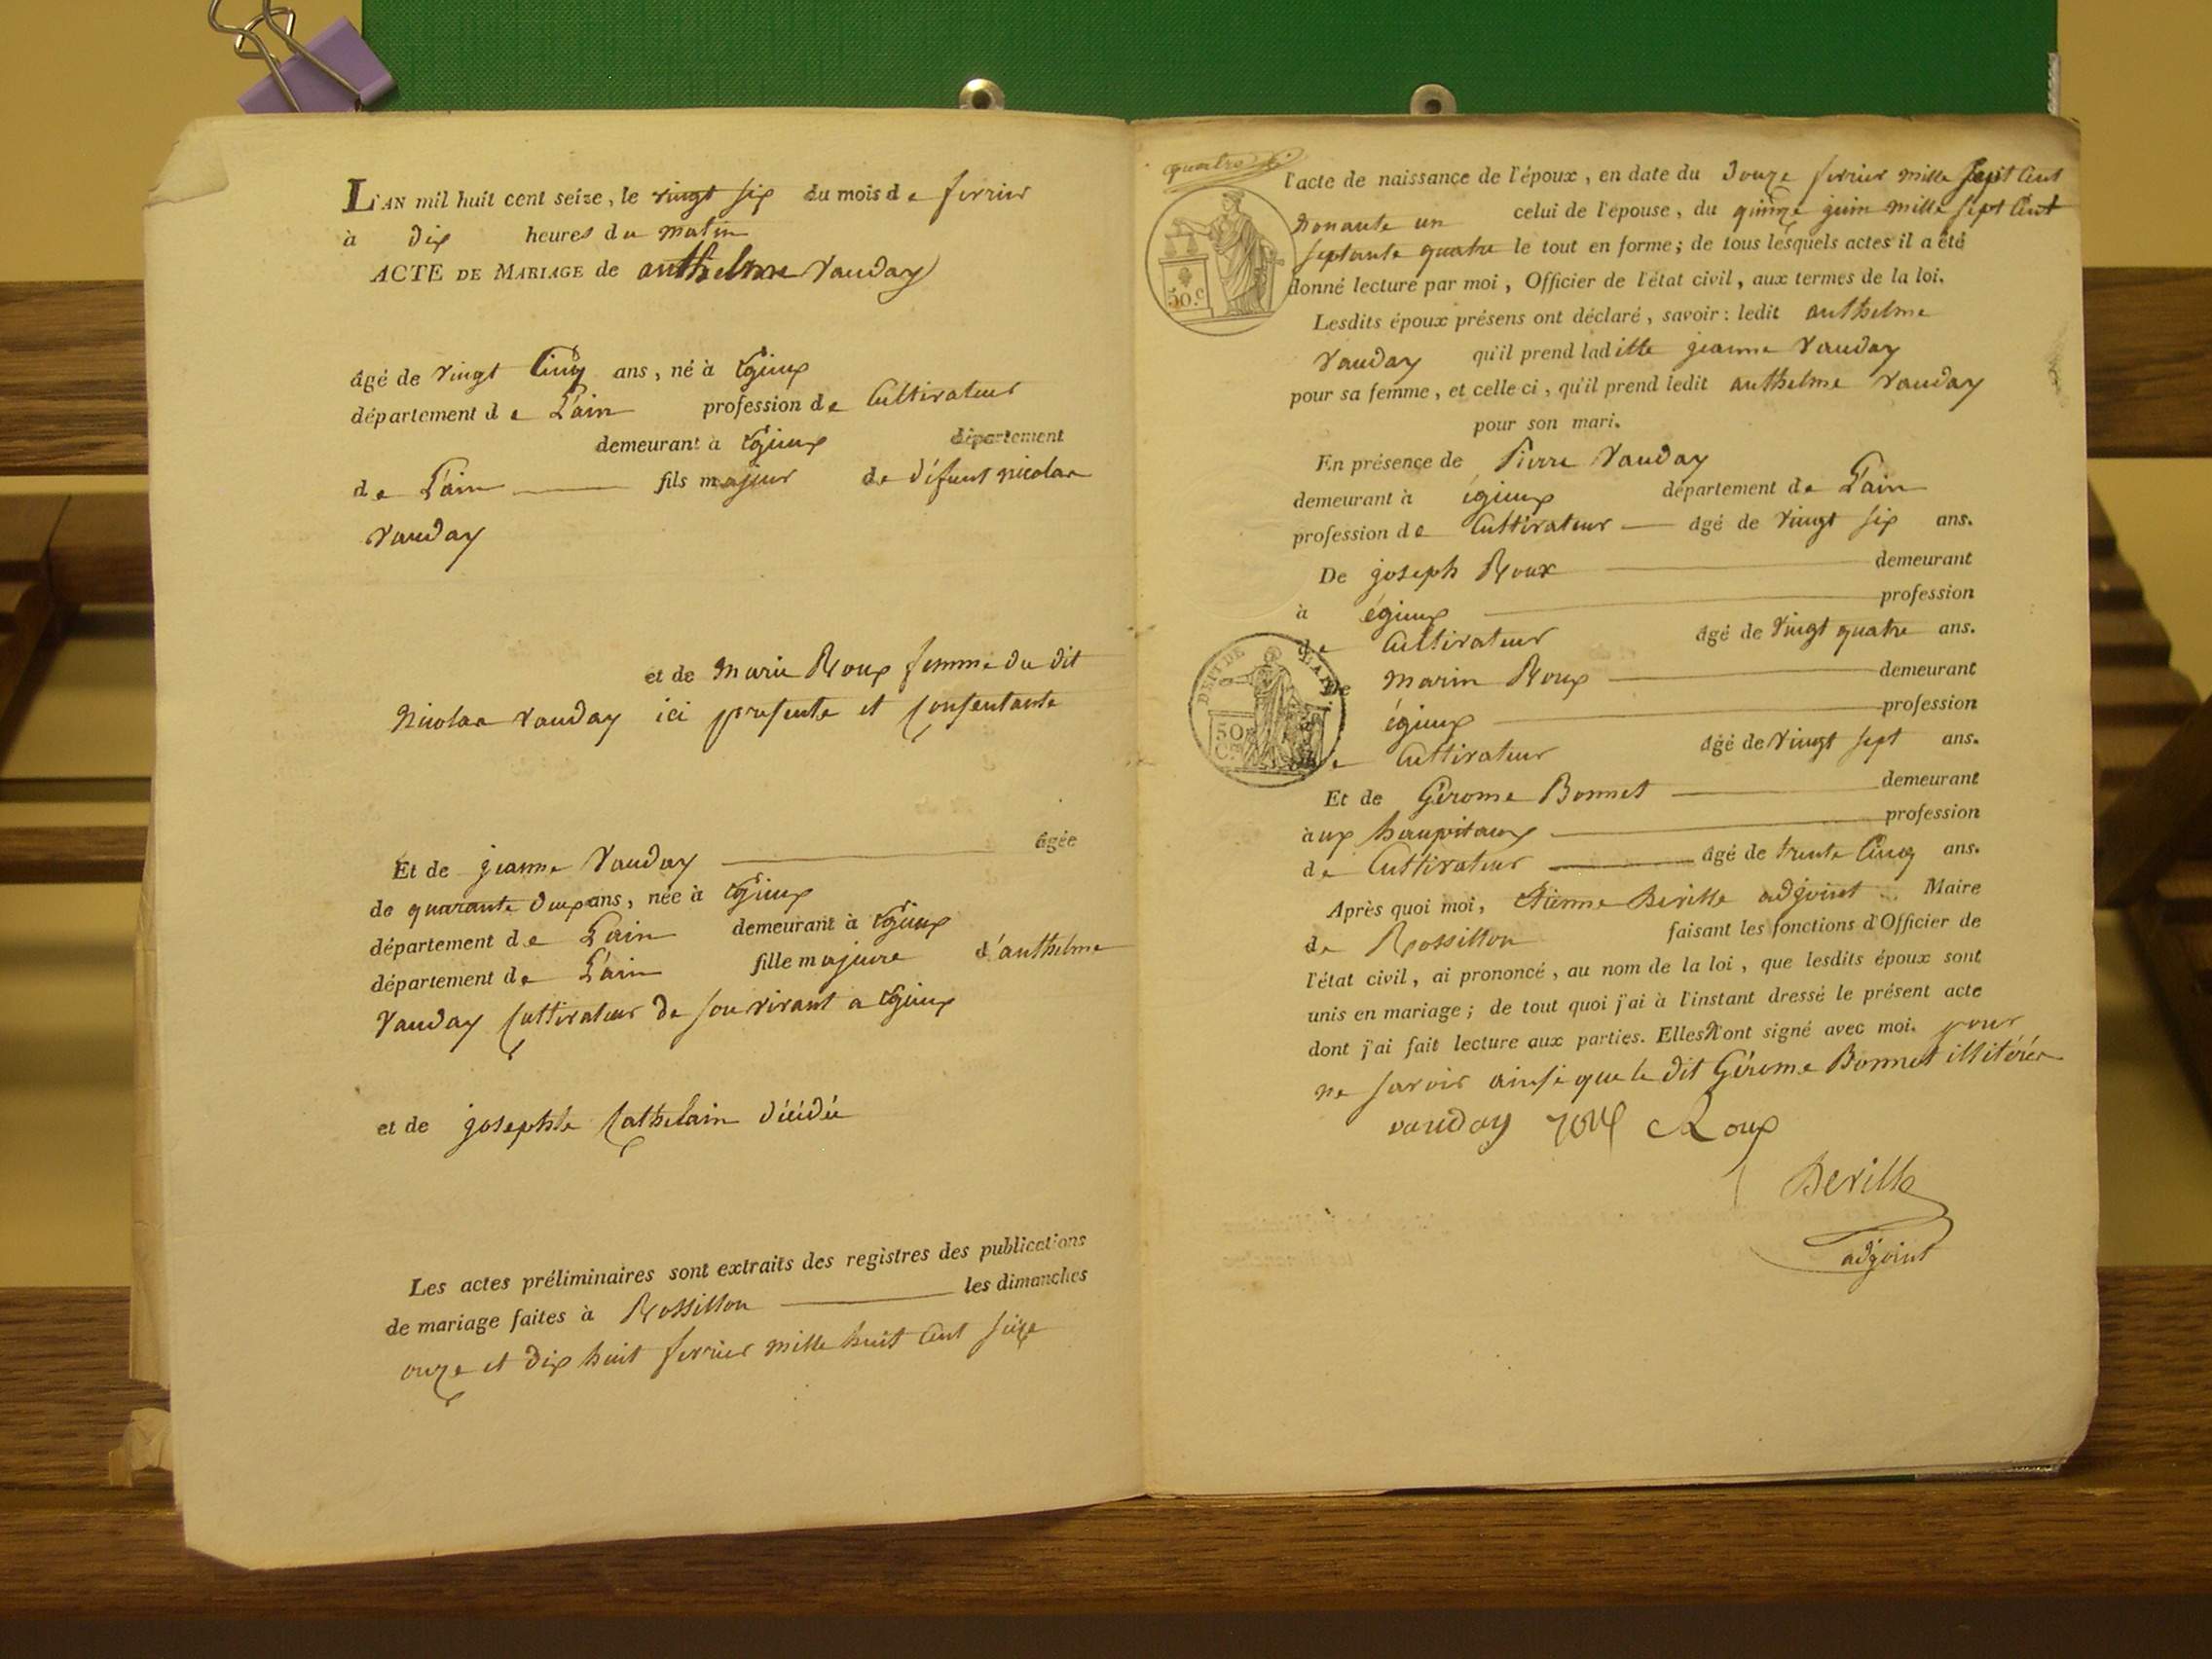 L'AN mil huit cent seize, le vingt six du mois de fevrier
à dix heures du matin
ACTE DE MARIAGE de anthelme Vauday
âgé de vingt Cinq ans, né à Egieux
département de L'ain profession de Cultivateur
demeurant à Egieux département
de L'ain fils majeur de défunt nicolas
Vauday
et de Marie Roux femme du dit
Nicolas Vauday ici presente et Consentante
Et de jeanne Vauday âgée
de quarante deux ans, née à Egieux
département de L'ain demeurant à Egieux
département de L'ain fille majeure d'anthelme
Vauday Cultivateur de son vivant a Egieux
et de josephte Cathelain décédée
Les actes préliminaires sont extraits des registres des publications
de mariage faites à Rossillon les dimanches
onze et dix huit fevrier mille huit Cent seize
quatre
l'acte de naissance de l'époux, en date du douze fevrier mille sept Cent
nonante un celui de l'épouse, du quinze juin mille sept Cent
septante quatre le tout en forme; de tous lesquels actes il a été
50.c
donné lecture par moi, Officier de l'état civil, aux termes de la loi.
Lesdits époux présens ont déclaré, savoir: ledit anthelme
Vauday qu'il prend laditte jeanne Vauday
pour sa femme, et celle ci, qu'il prend ledit anthelme Vauday
pour son mari.
En présence de Pierre Vauday
demeurant à égieux département de L'ain
profession de Cultivateur âgé de vingt six ans.
De joseph Roux demeurant
à égieux profession
de Cultivateur âgé de vingt quatre ans.
De marin Roux demeurant
à égieux profession
de Cultivateur âgé de vingt sept ans.
50
Et de Gérome Bonnet demeurant
aux haupitaux profession
de Cultivateur âgé de trente Cinq ans.
Après quoi moi, Etienne Berille adjoint Maire
de Rossillon faisant les fonctions d'Officier de
l'état civil, ai prononcé, au nom de la loi, que lesdits époux sont
unis en mariage; de tout quoi j'ai à l'instant dressé le présent acte
dont j'ai fait lecture aux parties. Elles n'ont signé avec moi. pour
ne savoir ainsi que le dit Gérome Bonnet illitérés
vauday Roux
Berille
adjoint